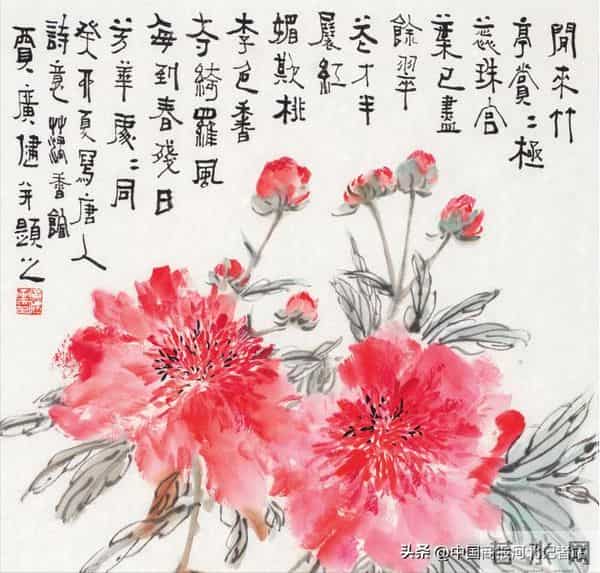 閒來竹
亭賞〻極
蕊珠宮
葉已盡
餘翠
花才半
展紅
媚欺桃
李色香
奪綺羅風
每到春殘日
芳華處〻同
癸卯夏寫唐人
詩意香館
賈廣健并題之
头条 @中国商报河记者
水网